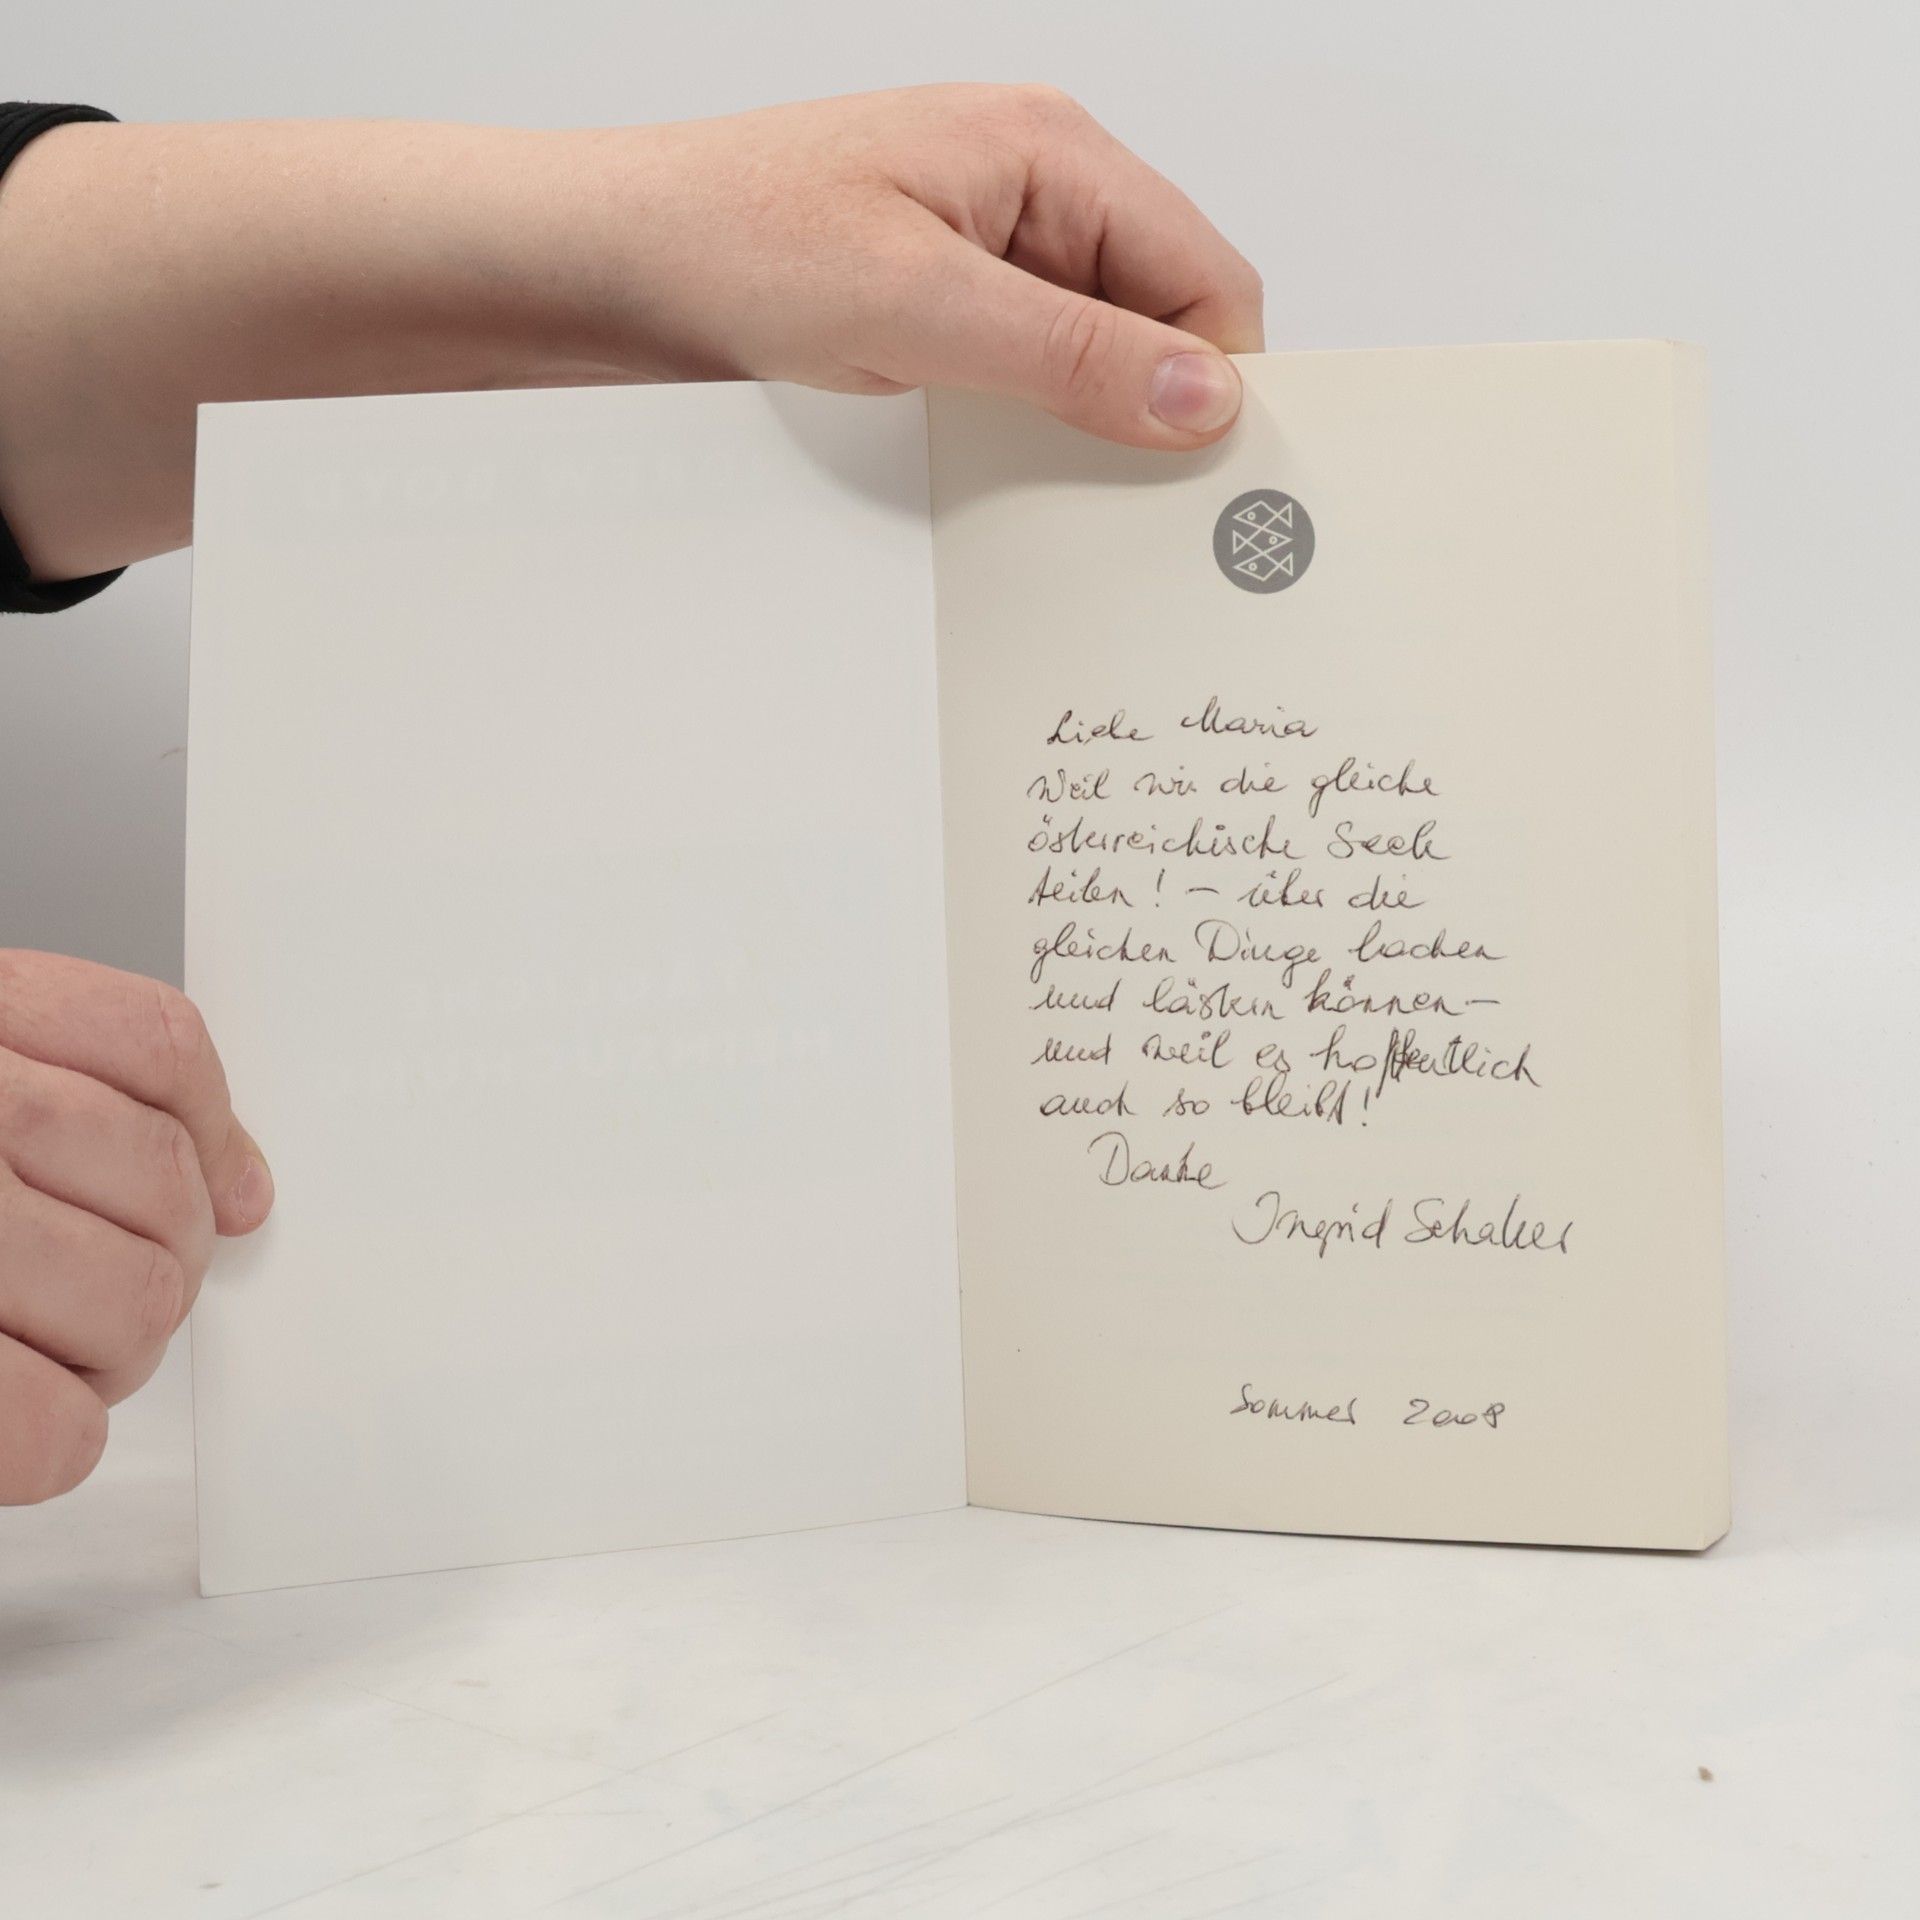 Liebe Maria
Weil wir die gleiche
österreichische Seele
teilen! – über die
gleichen Dinge lachen
und lästern können –
und weil es hoffentlich
auch so bleibt!
Danke
Ingrid Schaller
Sommer 2008